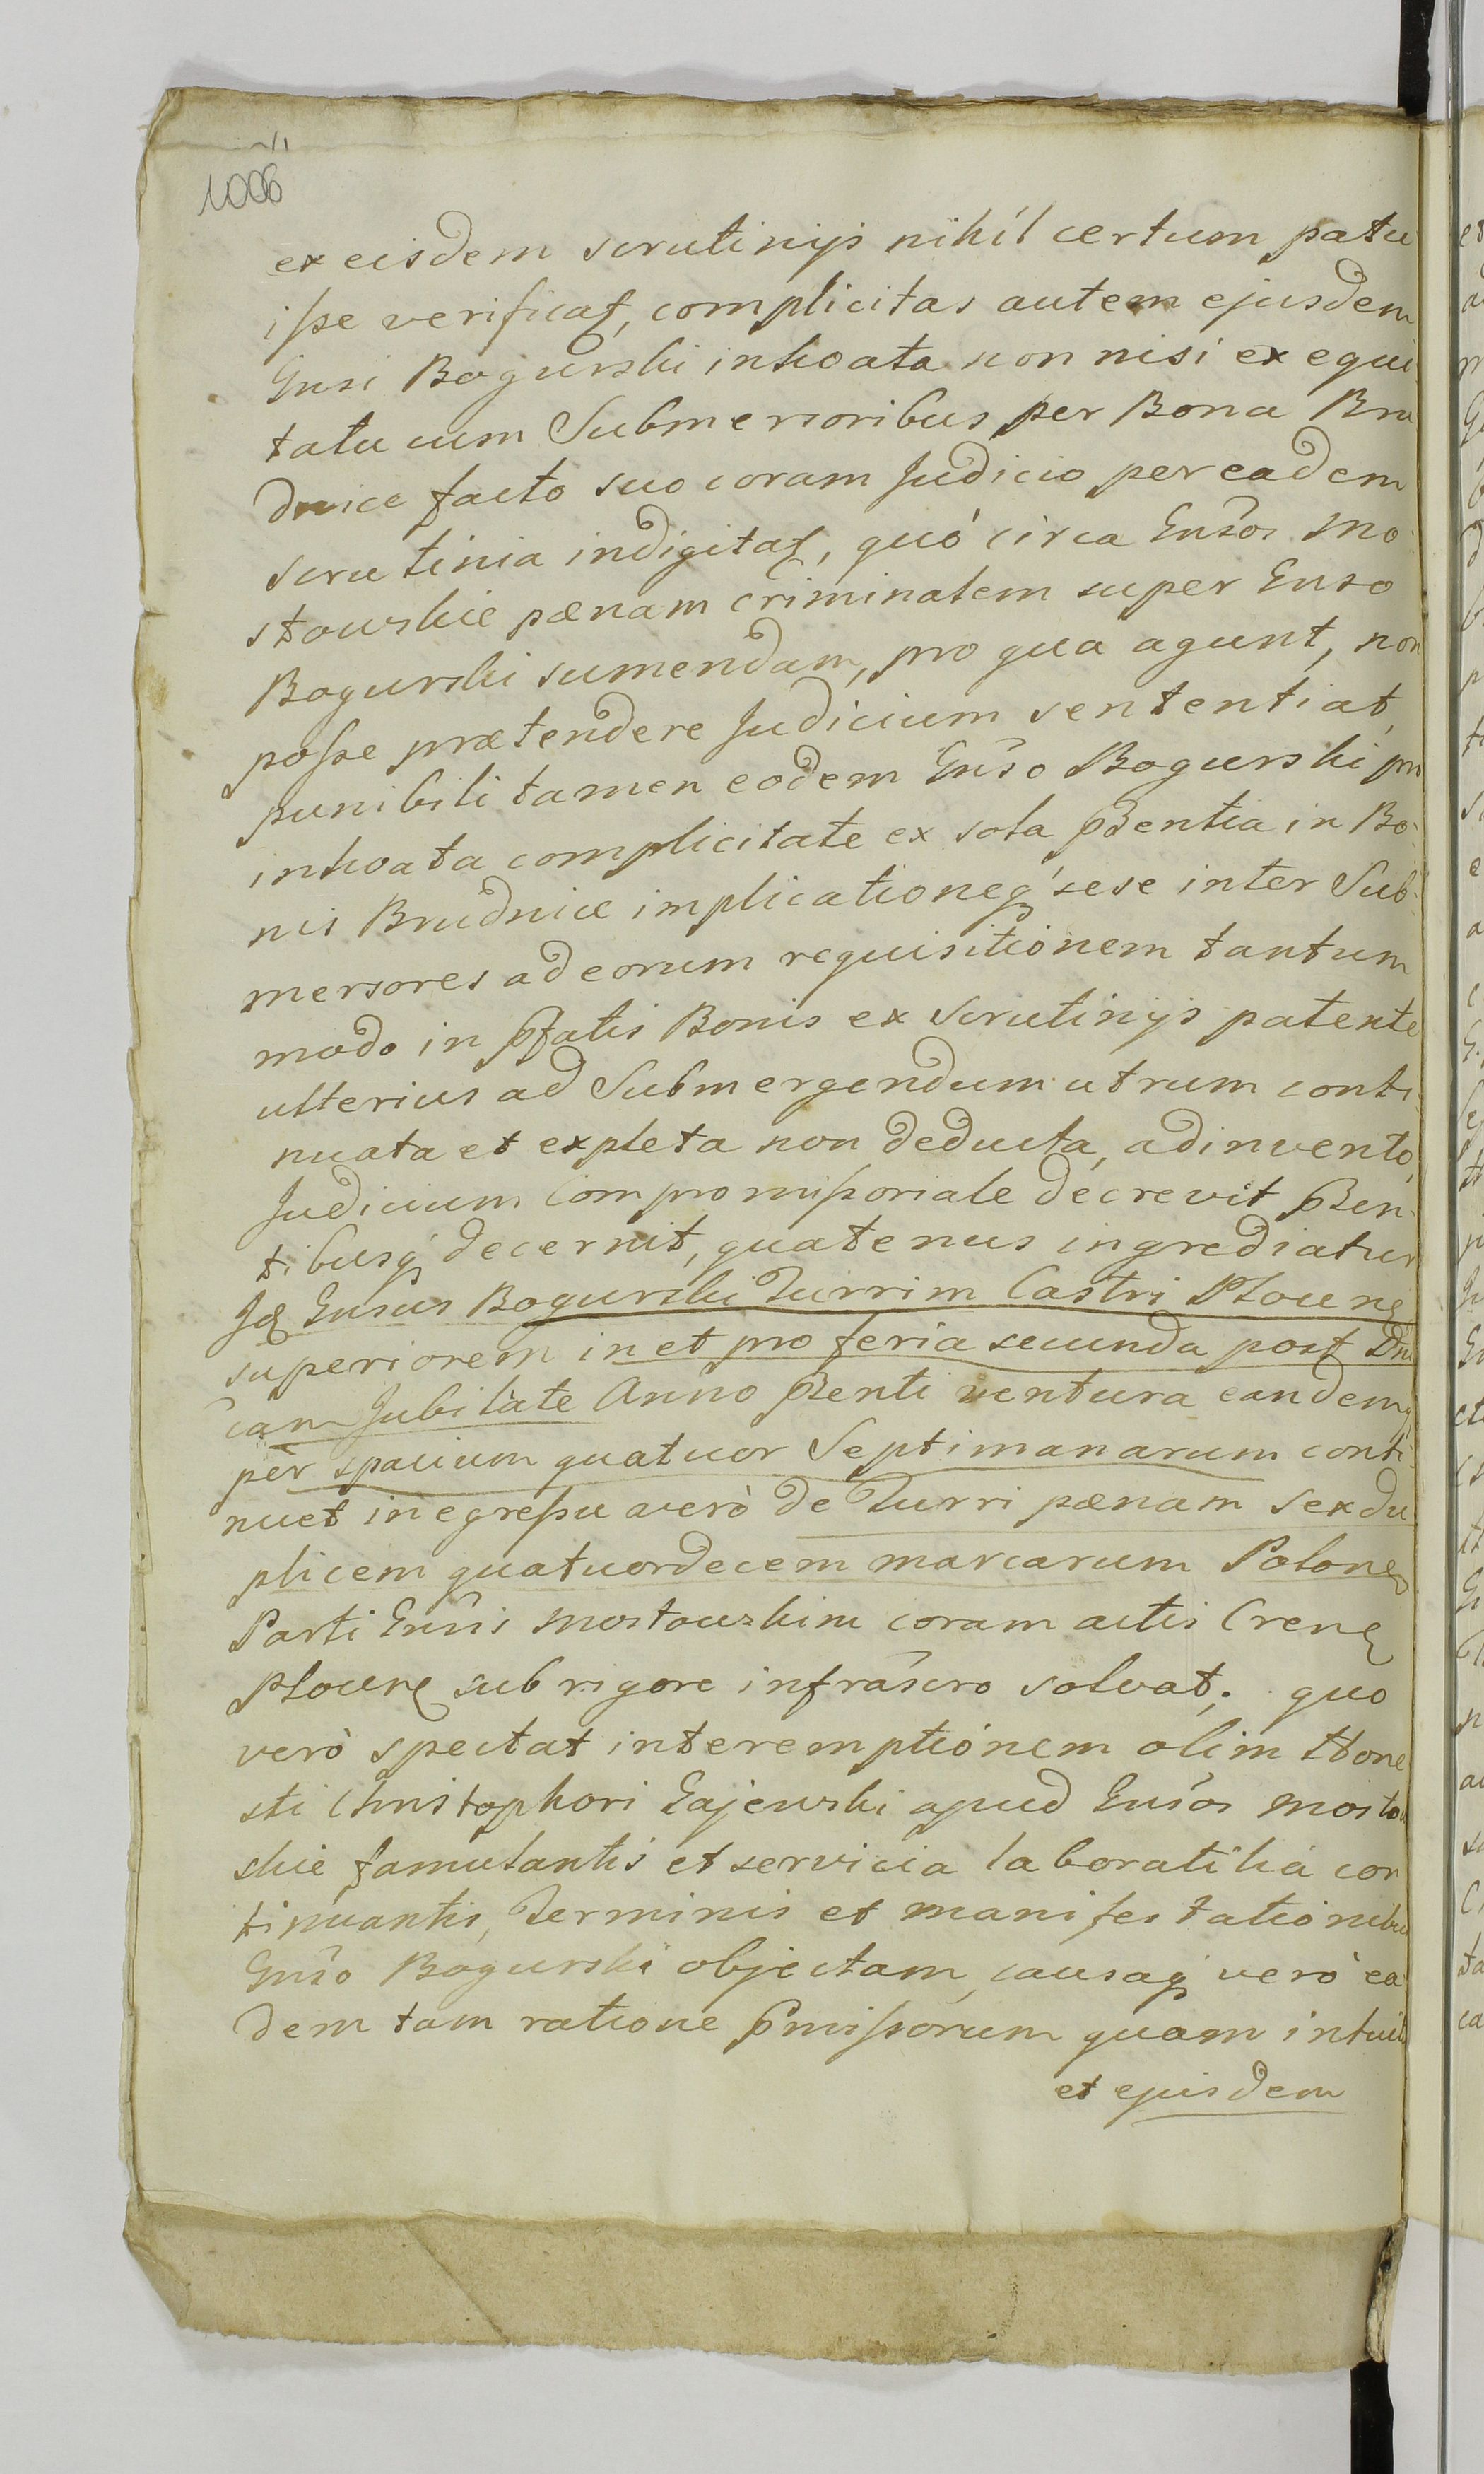 1006
ex eisdem scrutinijs nihil certum patu
isse verificat, complicitas autem ejusdem
Gnsi Bogurski inhoata non nisi ex equi
tatu cum Submersoribus per Bona Bru
dnice facto suo coram Judicio per eadem
scrutinia indigitat, quó circa Gnsos Mo
stowskie pænam criminalem super Gnso
Bogurski sumendam, pro qua agunt, non
posse prætendere Judicium sententiat,
punibili tamen eodem Gnso Bogurski pro
inhoata complicitate ex sola pñtia in Bo-
nis Brudnice implicationeq sese inter Sub-
mersores ad eorum requisitionem tantum
modo in pfatis Bonis ex Scrutinijs patente
ulterius ad Submergendum utrum conti
nuata et expleta non deducta, adinvento,
Judicium Compromissoriale decrevit pñ
tibusq decernit, quatenus ingrediatur
Idem Gnsus Bogurski Turrim Castri Plocens
superiorem in et pro feria secunda post Dni
cam Jubilate Anno pñti ventura eandemq
per spacium quatuor Septimanarum conti
nuet in egressu verò de Turri pænam sexdu
plicem quatuordecem marcarum Polones
Parti Gnsis Mostowskim coram actis Crens
Plocens sub rigore infrascro solvat; quo
verò spectat interemptionem olim Hone
sti Christophori Gajewski apud Gnsos Mosto
skie famulantis et servicia laboratilia con
tinuantis, Terminis et manifestationibus
Gnso Bogurski objectam, causaq verò ea
dem tam ratione pmissorum quam intuit
et ejusdem